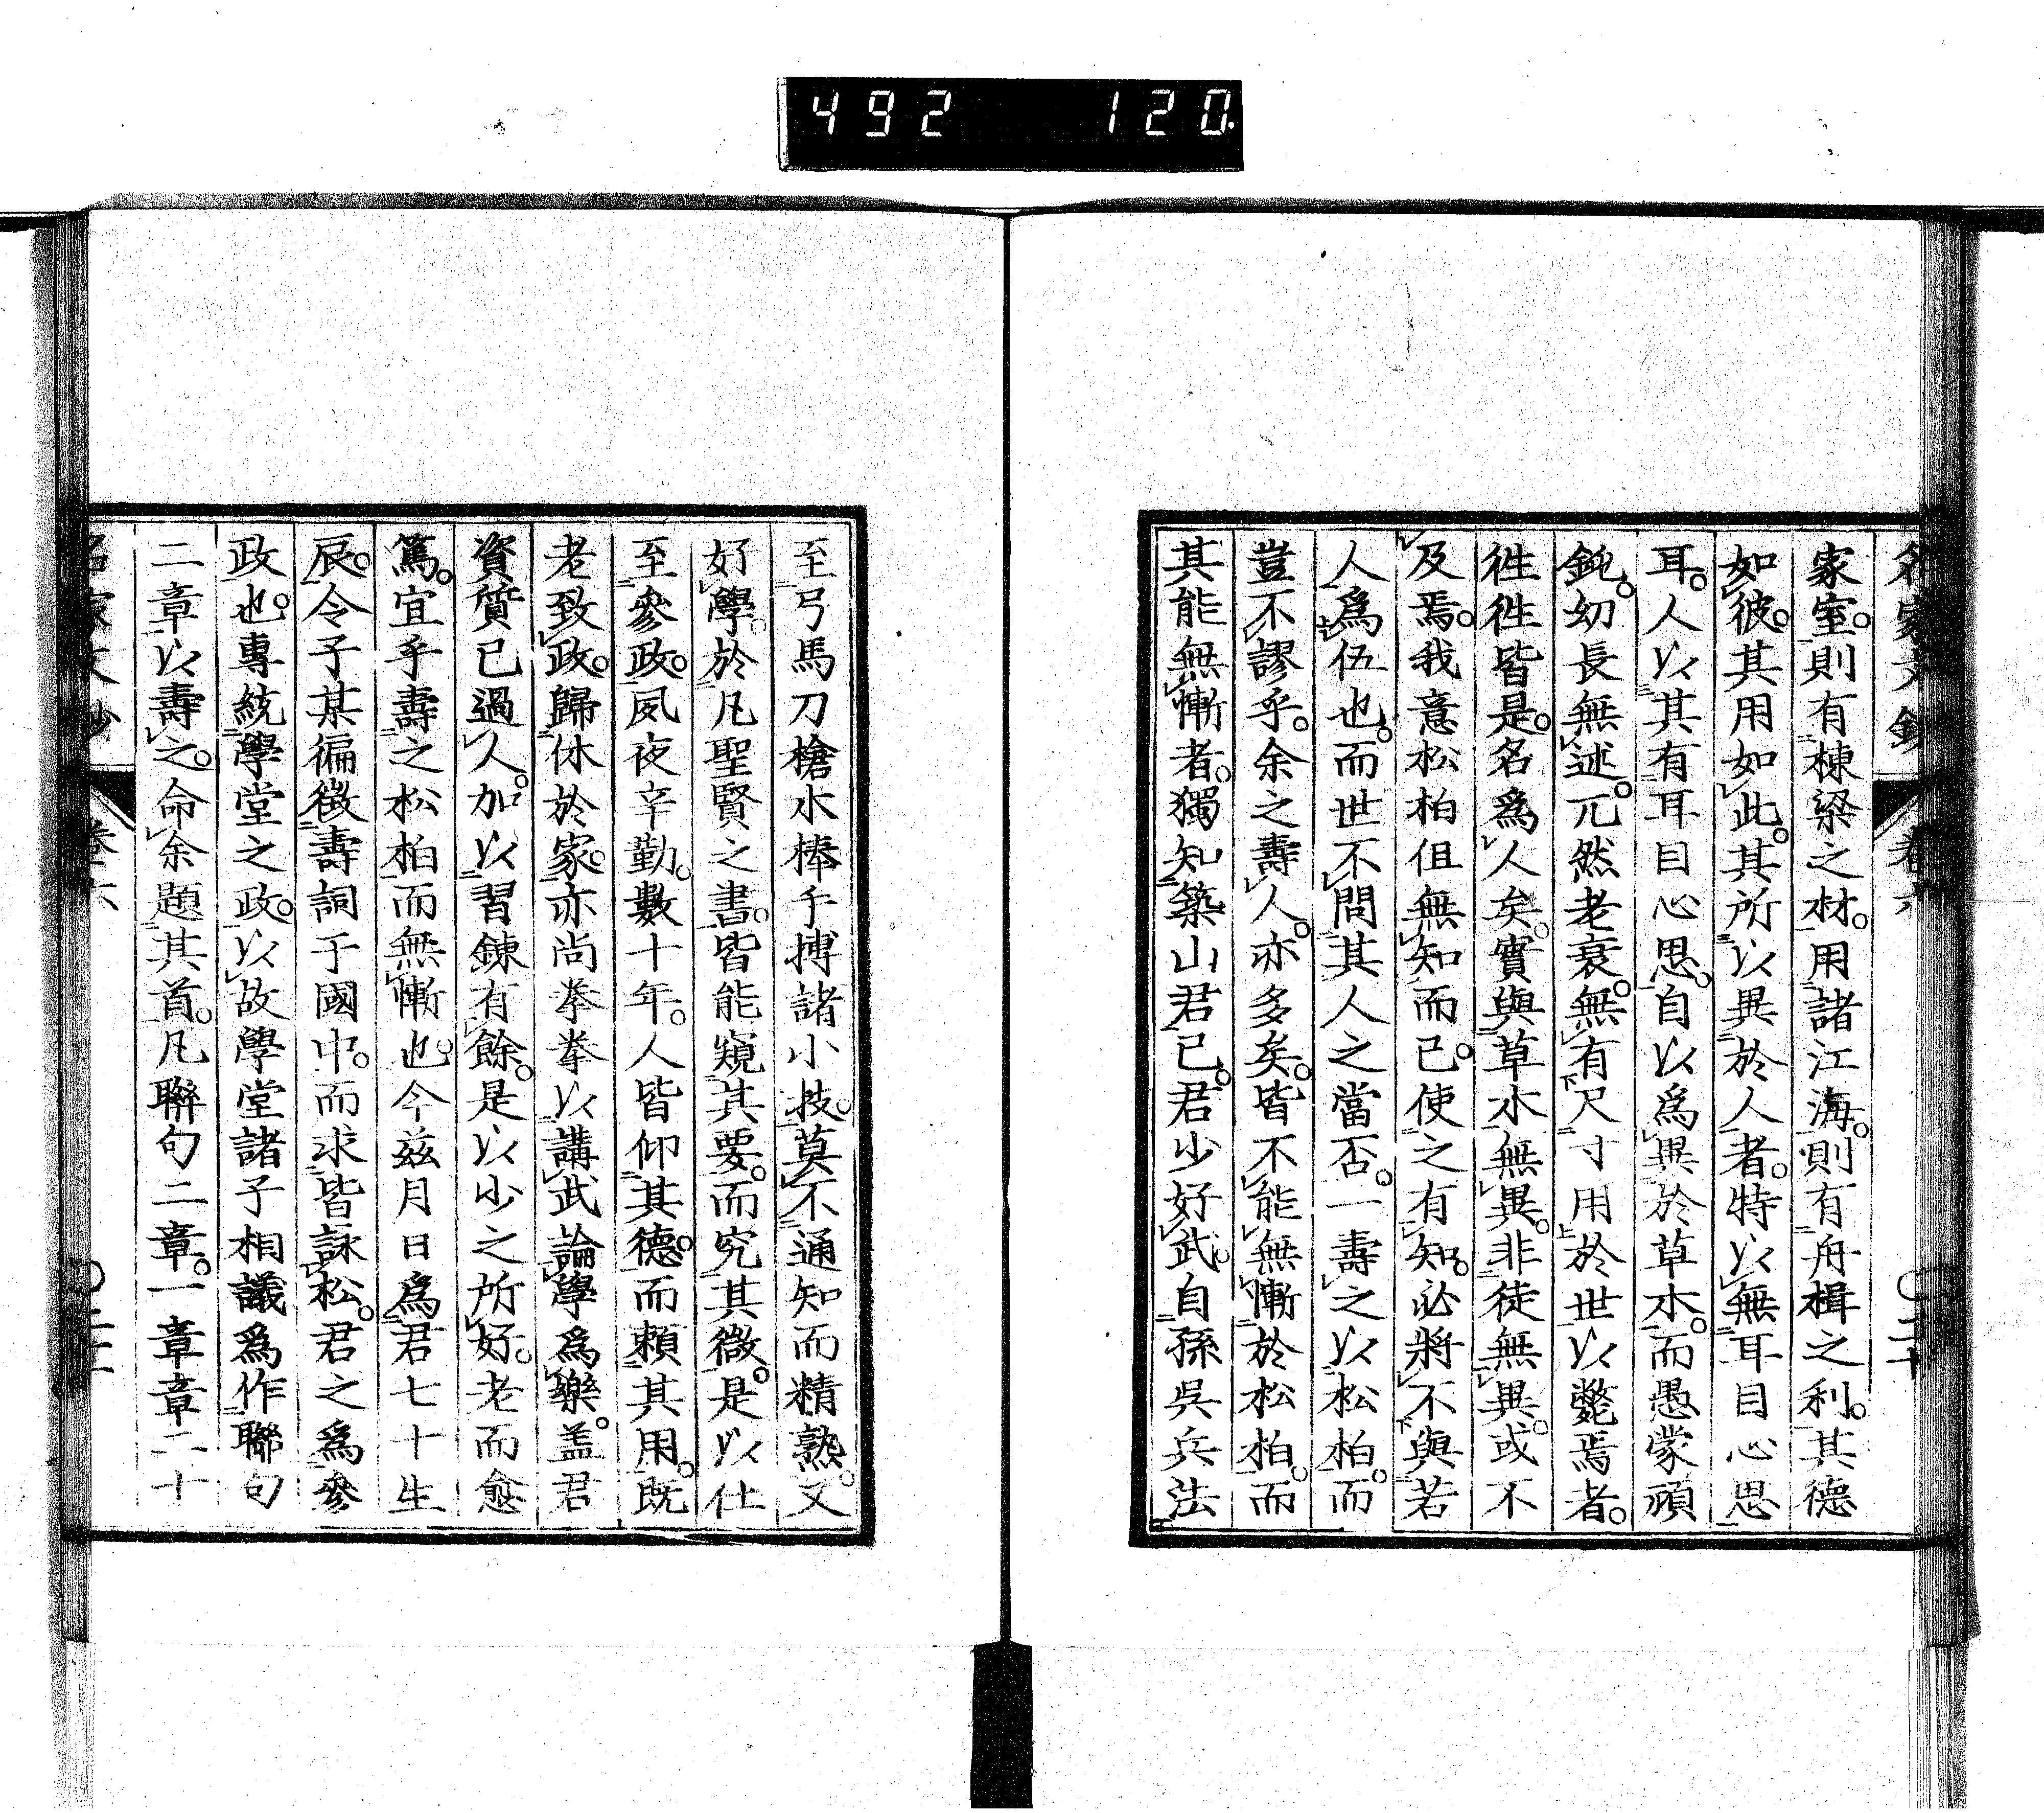 492 120
名家文鈔 卷六 〇二十
家室。則有棟梁之材。用諸江海。則有舟楫之利。其德
如彼。其用如此。其所以異於人者。特以無耳目心思
耳。人以其有耳目心思。自以爲異於草木。而愚蒙頑
鈍。幼長無述。兀然老衰。無有尺寸用於世以斃焉者。
徃徃皆是。名爲人矣。實與草木無異。非徒無異。或不
及焉。我意松柏但無知而已。使之有知。必將不與若
人爲伍也。而世不問其人之當否。一壽之以松柏。而
豈不謬乎。余之壽人。亦多矣。皆不能無慚於松柏。而
其能無慚者。獨知築山君已。君少好武。自孫吳兵法
至弓馬刀槍水棒手搏諸小技。莫不通知而精熟。又
好學。於凡聖賢之書。皆能窺其要。而究其微。是以仕
至參政。夙夜辛勤。數十年。人皆仰其德。而賴其用。既
老致政。歸休於家。亦尚拳拳以講武論學爲樂。盖君
資質已過人。加以習鍊有餘。是以少之所好。老而愈
篤。宜乎壽之松柏而無慚也。今兹月日爲君七十生
辰。令子某徧徴壽詞于國中。而求皆詠松。君之爲參
政也。專統學堂之政。以故學堂諸子相議爲作聯句
二章以壽之。命余題其首。凡聯句二章。一章章二十
名家文鈔 卷六 〇二十一